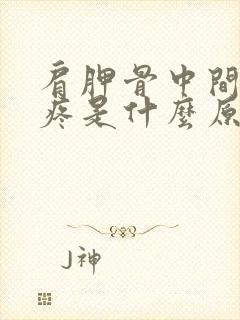 肩胛骨中間
疼是什麼原
J神